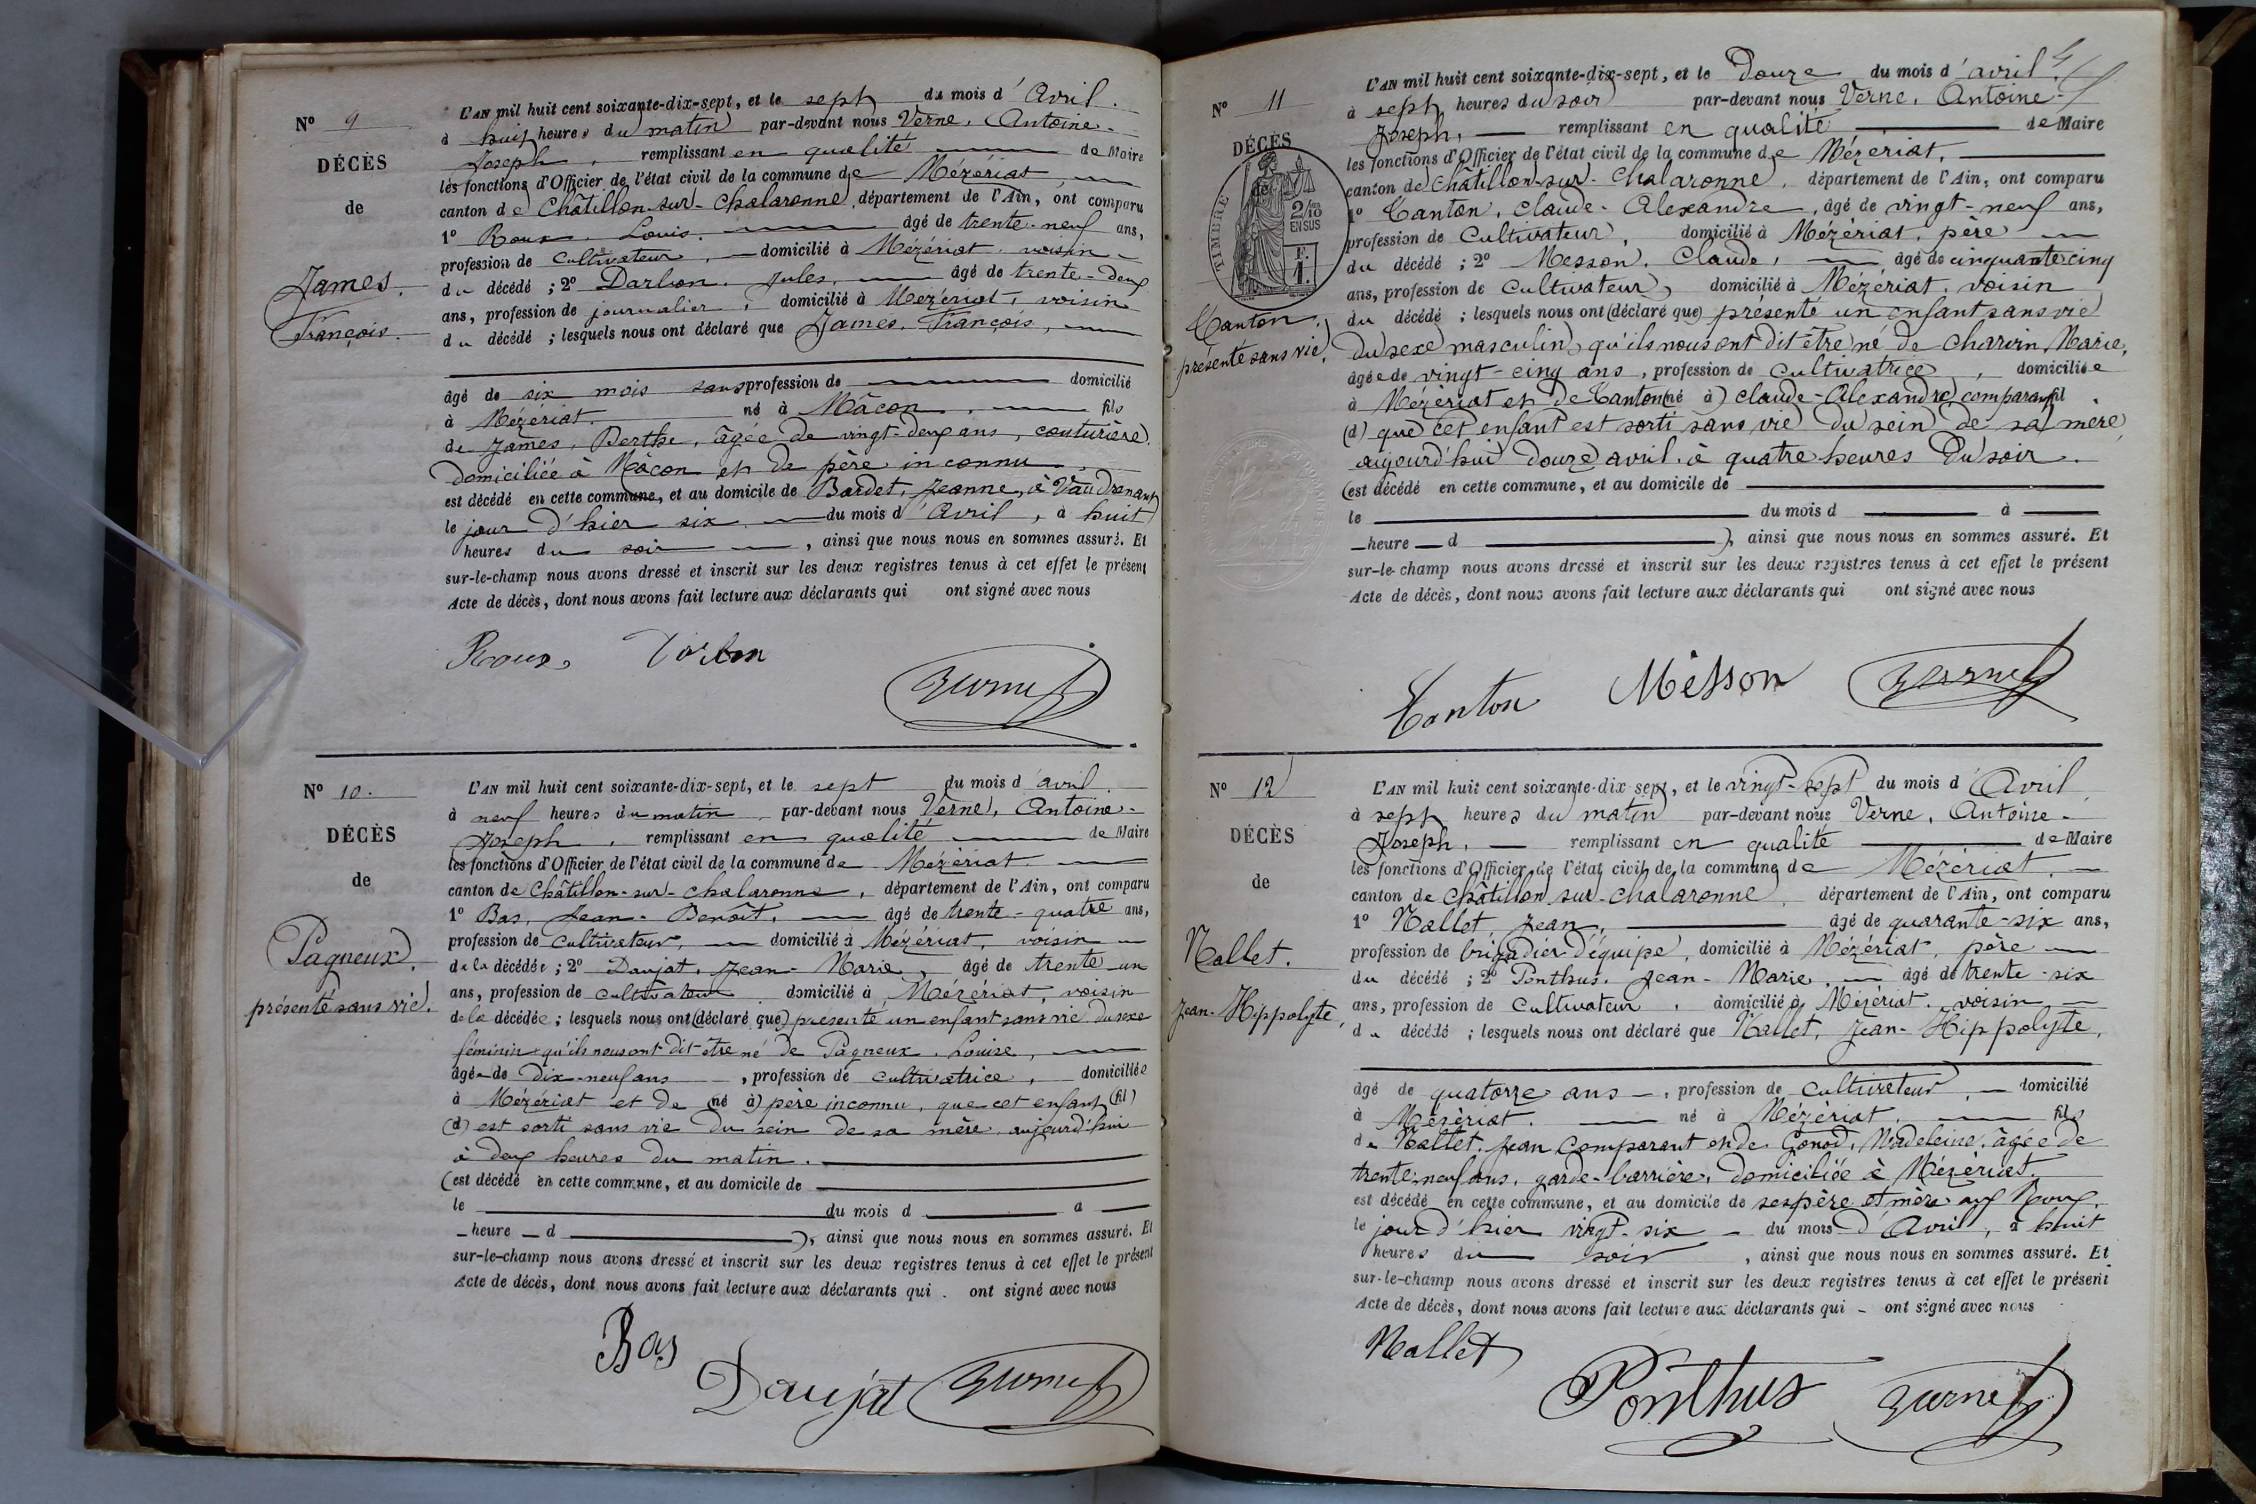 N° 9
DÉCÈS
de
James.
François.
L'AN mil huit cent soixante-dix-sept, et le sept du mois d'Avril.
à huit heures du matin par-devant nous Verne, Antoine-
Joseph, remplissant en qualité de Maire
les fonctions d'Officier de l'état civil de la commune de Mézériat
canton de Châtillon-sur-Chalaronne, département de l'Ain, ont comparu
1° Roux, Louis. âgé de trente-neuf ans,
profession de cultivateur, domicilié à Mézériat, voisin
du décédé ; 2° Darbon, Jules, âgé de trente-deux
ans, profession de journalier, domicilié à Mézériat, voisin
du décédé ; lesquels nous ont déclaré que James, François,
âgé de six mois sans profession de domicilié
à Mézériat. né à Mâcon, fils
de James, Berthe, âgée de vingt-deux ans, couturière,
domiciliée à Mâcon et de père inconnu
est décédé en cette commune, et au domicile de Bardet, Jeanne, à Vaudrenant
le jour d'hier six du mois d'Avril, à huit
heures du soir, ainsi que nous nous en sommes assuré. Et
sur-le-champ nous avons dressé et inscrit sur les deux registres tenus à cet effet le présent
Acte de décès, dont nous avons fait lecture aux déclarants qui ont signé avec nous
Roux Darbon Verne
N° 10.
DÉCÈS
de
Pagneux.
présenté sans vie.
L'AN mil huit cent soixante-dix-sept, et le sept du mois d'avril
à neuf heures du matin, par-devant nous Verne, Antoine-
Joseph, remplissant en qualité de Maire
les fonctions d'Officier de l'état civil de la commune de Mézériat.
canton de Châtillon-sur-Chalaronne, département de l'Ain, ont comparu
1° Bas, Jean-Benoît, âgé de trente-quatre ans,
profession de cultivateur, domicilié à Mézériat, voisin
de la décédée ; 2° Daujat, Jean-Marie, âgé de trente-un
ans, profession de cultivateur domicilié à Mézériat, voisin
de la décédée ; lesquels nous ont (déclaré que) présenté un enfant sans vie du sexe
féminin qu'ils nous ont dit être né de Pagneux, Louise,
âgée de dix-neuf ans, profession de cultivatrice, domiciliée
à Mézériat et de (né à) père inconnu, que cet enfant (fil)
(d) est sorti sans vie du sein de sa mère aujourd'hui
à deux heures du matin.
(est décédé en cette commune, et au domicile de
le du mois d à
heure d ), ainsi que nous nous en sommes assuré. Et
sur-le-champ nous avons dressé et inscrit sur les deux registres tenus à cet effet le présent
Acte de décès, dont nous avons fait lecture aux déclarants qui ont signé avec nous
Bas
Daujat Verne
N° 11
DÉCÈS
de
TIMBRE
2/10
EN SUS
F.
1.
Tanton,
présenté sans vie.
L'AN mil huit cent soixante-dix-sept, et le Douze du mois d'avril
à sept heures du soir par-devant nous Verne, Antoine-
Joseph, remplissant en qualité de Maire
les fonctions d'Officier de l'état civil de la commune de Mézériat,
canton de Châtillon-sur-Chalaronne, département de l'Ain, ont comparu
1° Tanton, Claude-Alexandre, âgé de vingt-neuf ans,
profession de Cultivateur, domicilié à Mézériat, père
du décédé ; 2° Messon, Claude, âgé de cinquante-cinq
ans, profession de Cultivateur, domicilié à Mézériat, voisin
du décédé ; lesquels nous ont (déclaré que) présenté un enfant sans vie
du sexe masculin, qu'ils nous ont dit être né de Charvin, Marie,
âgée de vingt-cinq ans, profession de cultivatrice, domiciliée
à Mézériat et de Tanton (né à) Claude-Alexandre, comparant fil
(d) que cet enfant est sorti sans vie du sein de sa mère
aujourd'hui douze avril à quatre heures du soir.
(est décédé en cette commune, et au domicile de
le du mois d à
heure d ), ainsi que nous nous en sommes assuré. Et
sur-le-champ nous avons dressé et inscrit sur les deux registres tenus à cet effet le présent
Acte de décès, dont nous avons fait lecture aux déclarants qui ont signé avec nous
Tanton Mèsson Verne
N° 12
DÉCÈS
de
Nallet.
Jean-Hippolyte,
L'AN mil huit cent soixante-dix-sept, et le vingt-sept du mois d'Avril
à sept heures du matin par-devant nous Verne, Antoine-
Joseph, remplissant en qualité de Maire
les fonctions d'Officier de l'état civil de la commune de Mézériat,
canton de Châtillon-sur-Chalaronne, département de l'Ain, ont comparu
1° Nallet, Jean, âgé de quarante-six ans,
profession de brigadier d'équipe, domicilié à Mézériat, père
du décédé ; 2° Ponthus, Jean-Marie, âgé de trente-six
ans, profession de Cultivateur, domicilié à Mézériat, voisin
du décédé ; lesquels nous ont déclaré que Nallet, Jean-Hippolyte,
âgé de quatorze ans, profession de cultivateur, domicilié
à Mézériat. né à Mézériat, fils
de Nallet, Jean comparant et de Gonod, Madeleine, âgée de
trente-neuf ans, garde-barrière, domiciliée à Mézériat.
est décédé en cette commune, et au domicile de ses père et mère aux Roux
le jour d'hier vingt-six du mois d'Avril, à huit
heures du soir, ainsi que nous nous en sommes assuré. Et
sur-le-champ nous avons dressé et inscrit sur les deux registres tenus à cet effet le présent
Acte de décès, dont nous avons fait lecture aux déclarants qui ont signé avec nous
Nallet
Ponthus Verne